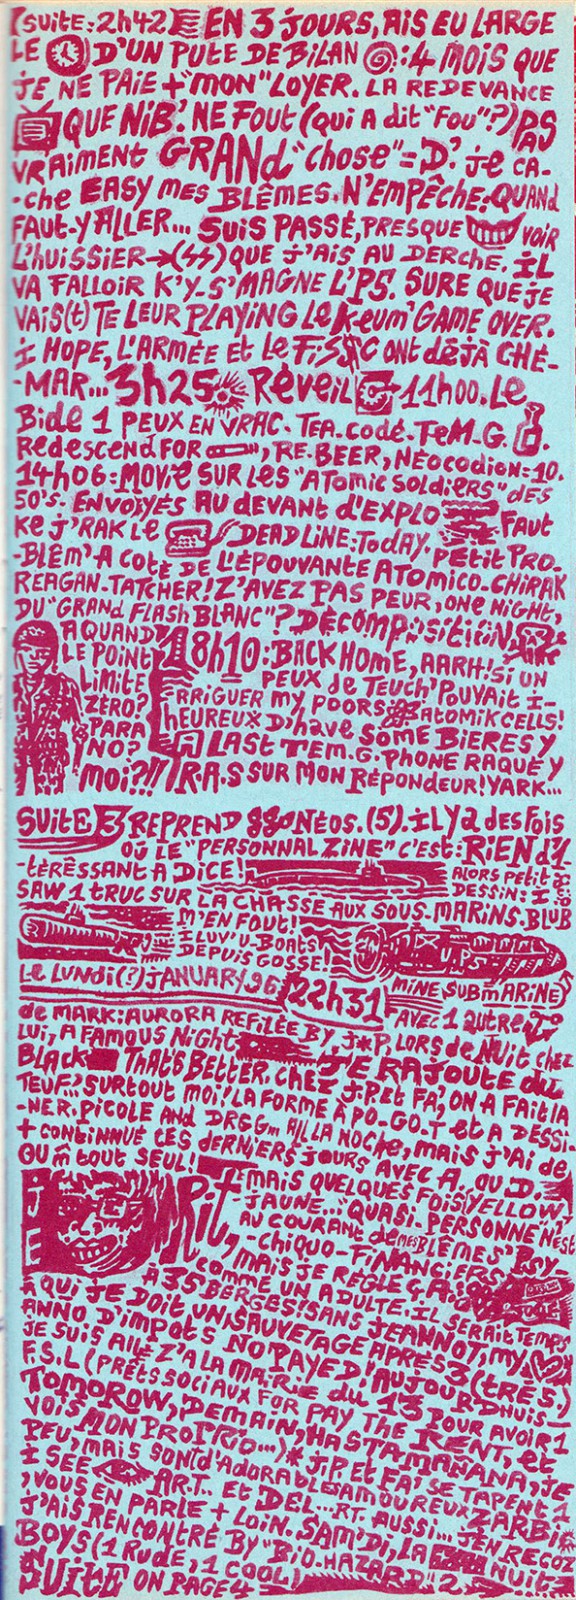 (SUITE: 2h42) EN 3 JOURS, AIS EU LARGE
LE D'UN PUTE DE BILAN : 4 MOIS QUE
JE NE PAIE + "MON" LOYER. LA REDEVANCE
QUE NIB! NE FOUT (QUI A DIT "FOU"?) PAS
VRAIMENT GRAND "CHOSE" = D' JE CA-
-CHE EASY MES BLÊMES. N'EMPÊCHE: QUAND
FAUT-Y ALLER... SUIS PASSÉ, PRESQUE VOIR
L'HUISSIER → (ϟϟ) QUE J'AIS AU DERCHE. IL
VA FALLOIR K'Y S'MAGNE L'PS. SURE QUE JE
VAIS(T) TE LEUR PLAYING LE KEUM' GAME OVER.
I HOPE, L'ARMÉE ET LE FISSC ONT DÉJÀ CHÉ-
-MAR... 3h25 RÉVEIL 11h00. LE
BIDE 1 PEUX EN VRAC. TEA. CODÉ. TEM. G.
REDESCEND FOR , RE. BEER, NÉOCODION = 10.
14h06: MOVIE SUR LES "ATOMIC SOLDIERS" DES
50's. ENVOYÉS AU DEVANT D'EXPLO FAUT
KE J'RAK LE DEADLINE: TODAY. PETIT PRO-
-BLÈM' A COTÉ DE L'ÉPOUVANTE ATOMICO. CHIRAK
REAGAN. TATCHER! Z'AVEZ PAS PEUR, ONE NIGHT,
DU "GRAND FLASH BLANC"? DÉCOMPOSITION
A QUAND
LE POINT
LIMITE
ZÉRO?
PARA
NO?
MOI?!!
18h10: BACK HOME, AARH! SI UN
PEUX DE TEUCH' POUVAIT I-
-RRIGUER MY POORS ATOMIK CELLS!
HEUREUX D'HAVE SOME BIERES Y
A LAST TEM. G. PHONE RAQUÉ Y
R.A.S SUR MON RÉPONDEUR! YARK...
SUITE 3 REPREND NÉOS. (5). IL Y A DES FOIS
OÙ LE "PERSONNAL ZINE" C'EST: RIEN D'1
-TÉRÊSSANT A DICE! ALORS PETIT
DESSIN: I
SAW 1 TRUC SUR LA CHASSE AUX SOUS-MARINS. BLUB
M'EN FOUT!
I LUV' U-BOATS
DEPUIS GOSSE!
LE LUNDI (?) JANUARY 96 22h31 MINE SUBMARINE
AVEC 1 AUTRE
DE MARK: AURORA REFILÉE BY J*P, LORS DE NUIT CHEZ
LUI, A FAMOUS NIGHT JE RAJOUTE DU
BLACK THAT'S BETTER. CHEZ J.P. ET FA', ON A FAIT LA
TEUF.' SURTOUT MOI! LA FORME À PO. GO. T ET A DESSI-
-NER. PICOLE AND DRGG... ALL LA NOCHE, MAIS J'AI DE
+ CONTINNUÉ CES DERNIERS JOURS AVEC A. OU D.
OU M TOUT SEUL!
JE RIT, + MAIS QUELQUES FOIS YELLOW,
JAUNE... "QUASI-PERSONNE" N'EST
AU COURANT DE MES BLÊMES' PSY-
-CHIQUO-FINANCIERS,
MAIS JE RÈGLE ÇA
COMME UN ADULTE. IL SERAIT TEMPS
A 35 BERGES! SANS JEANNOT, MY
A QUI JE DOIT UN SAUVETAGE APRÈS 3 (TRES)
ANNO D'IMPOTS NO PAYED! AUJOURD'HUIS
JE SUIS ALLÉ Z'A LA MAIRIE DU 13 POUR AVOIR 1
F.S.L (PRÊTS SOCIAUX FOR PAY THE RENT, ET
TOMOROW, DEMAIN, HASTA MANANA, JE
VOIS MON PROPRIO...) * J.P. ET FA', SE TAPENT 1
PEU, MAIS SONT D'ADORABLES AMOUREUX ZARBI
I SEE ART.. ET DEL...RT. AUSSI... J'EN RECOZ
, VOUS EN PARLE + LOIN. SAM'DI, LA NUIT
J'AIS RENCONTRE BY "BIO. HAZARD" 2
BOYS (1 RUDE, 1 COOL)
SUITE ON PAGE 4